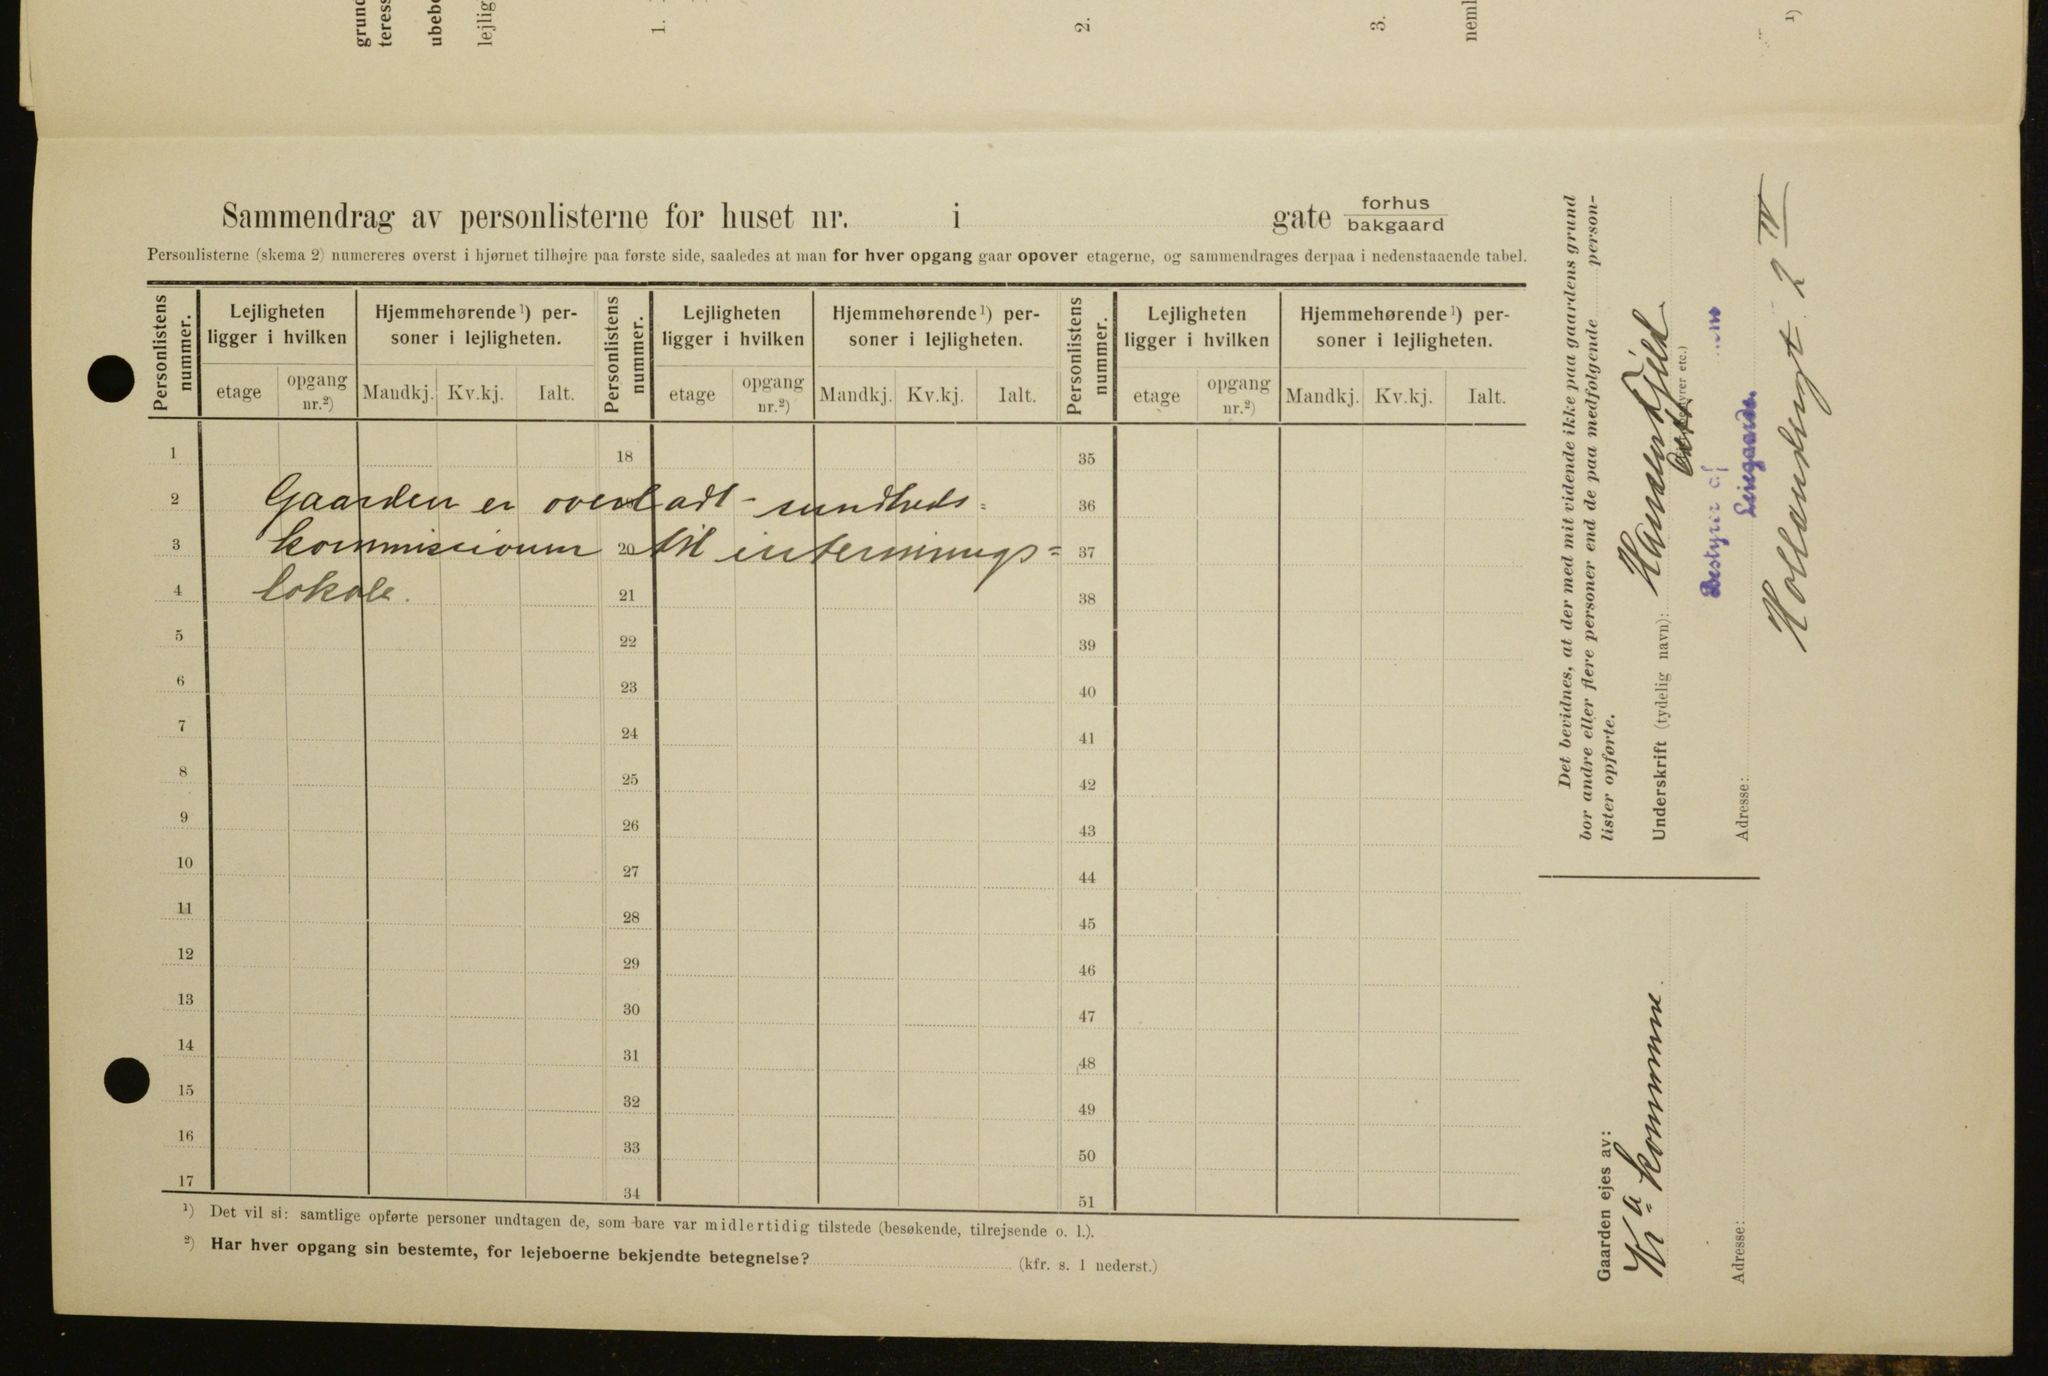 grund
teress
ubebo
lejlig
1.
2.
3.
neml
1)
Sammendrag av personlisterne for huset nr. i gate forhus
bakgaard
Personlisterne (skema 2) numereres øverst i hjørnet tilhøjre paa første side, saaledes at man for hver opgang gaar opover etagerne, og sammendrages derpaa i nedenstaaende tabel.
Personlistens nummer.
Lejligheten ligger i hvilken
Hjemmehørende ¹) personer i lejligheten.
Personlistens nummer.
Lejligheten ligger i hvilken
Hjemmehørende ¹) personer i lejligheten.
Personlistens nummer.
Lejligheten ligger i hvilken
Hjemmehørende ¹) personer i lejligheten.
etage opgang nr.²) Mandkj. Kv.kj. Ialt. etage opgang nr.²) Mandkj. Kv.kj. Ialt. etage opgang nr.²) Mandkj. Kv.kj. Ialt.
1 18 35
2 36
Gaarden er overladt sundheds=
3 20 37
kommissionen til internings=
4 21 38
lokale.
5 22 39
6 23 40
7 24 41
8 25 42
9 26 43
10 27 44
11 28 45
12 29 46
13 30 47
14 31 48
15 32 49
16 33 50
17 34 51
¹) Det vil si: samtlige opførte personer undtagen de, som bare var midlertidig tilstede (besøkende, tilrejsende o. l.).
²) Har hver opgang sin bestemte, for lejeboerne bekjendte betegnelse? (kfr. s. 1 nederst.)
Det bevidnes, at der med mit vidende ikke paa gaardens grund
bor andre eller flere personer end de paa medfølgende person-
lister opførte.
Underskrift (tydelig navn):
Bestyrer af
Leiegaarde.
Adresse:
Hollendergt 2 IV
Gaarden ejes av:
Kra kommune.
Adresse: